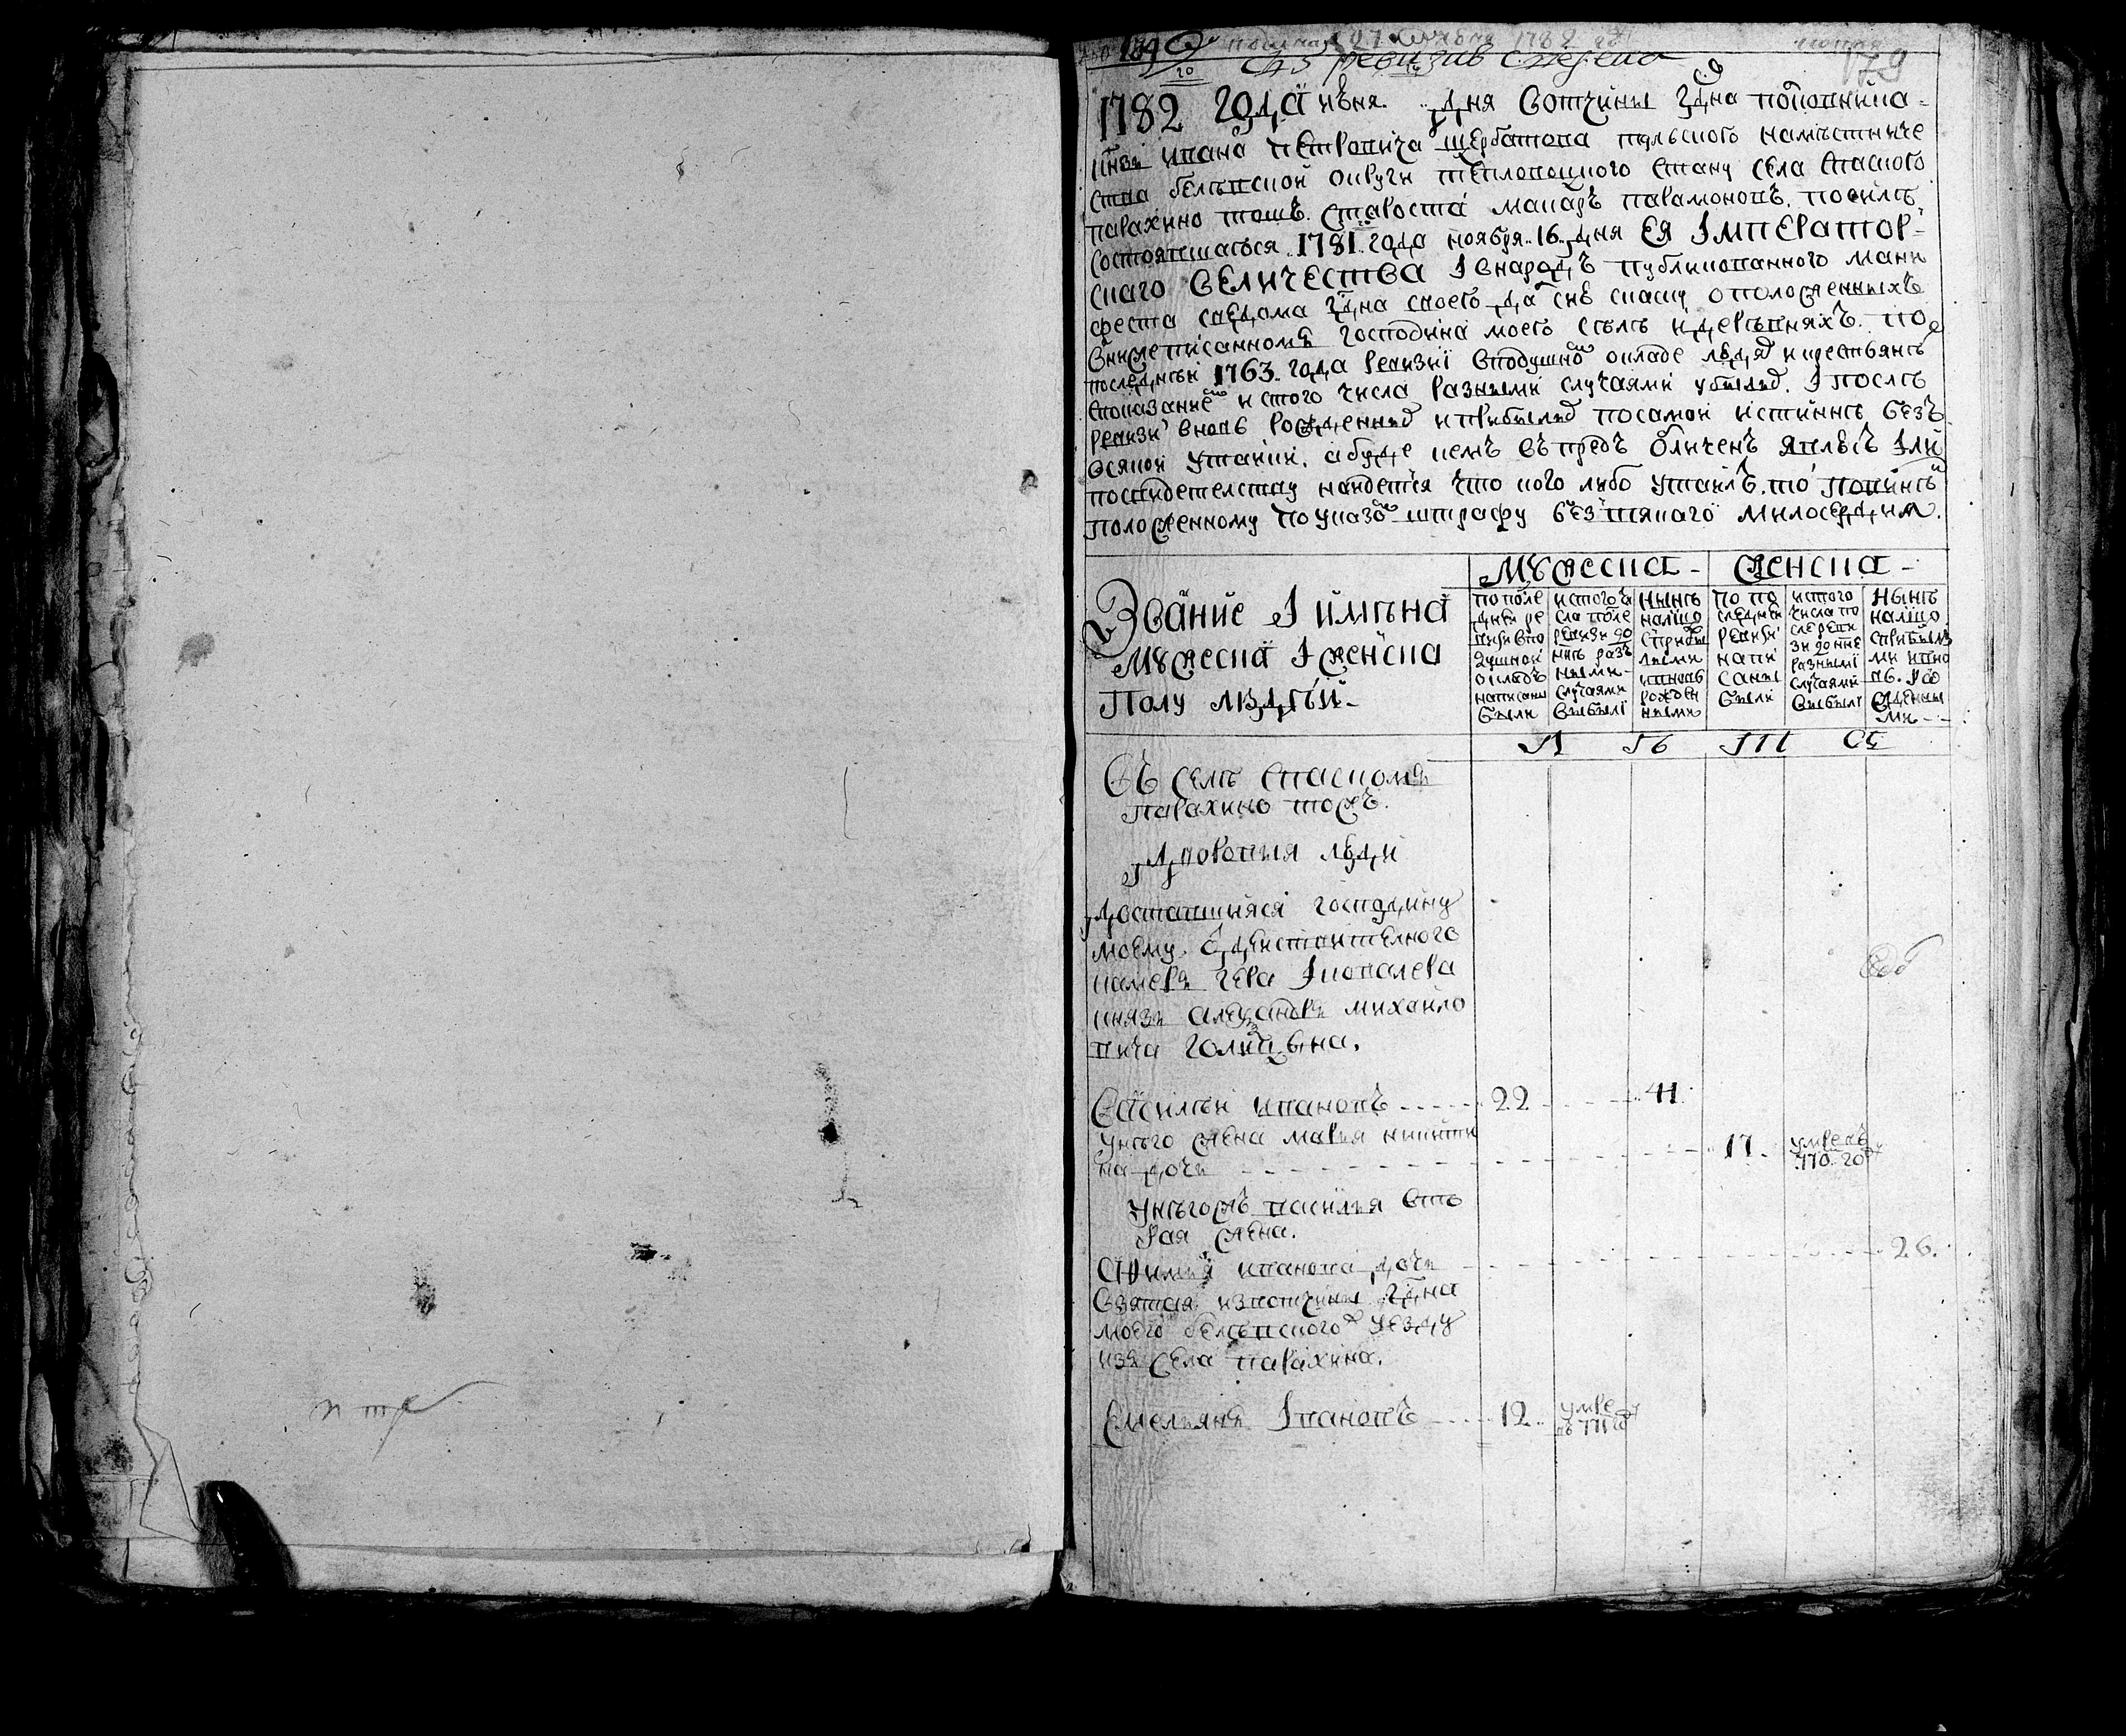 1782 года июня .. дня вотчины гдна полковника
князя ивана петровича щербатова тульского намѣстниче
ства белевской округи села спаского
парахино тожъ староста макаръ парамоновъ по силѣ
состоявшагося 1781 года ноября 16 дня ЕЯ ІМПЕРАТОР-
скаго ВЕЛИЧЕСТВА і внародъ публикованного мани
феста сведома гдна своего далъ сию скаску о положенныхъ
в нижеписанномъ господина моего селѣ и деревняхъ по
последней 1763 года ревизиї в подушной окладе людей и крестьянъ
с показаниемъ ис того числа разными случаями убылыхъ і послѣ
ревизи вновь рожденныхъ и прибылыхъ по самой истиннѣ безъ
всякой утайки, а буде кемъ въпредъ обличенъ явлюсь или
по свидетелству найдетъся что кого либо утаилъ, то повиненъ
положенному по указомъ штрафу безъ всякаго милосердия.
Звание і имяна
мужеска і женска
полу людей
Мужеска - Женска -
по после дней ре визи в по душной окладъ написаны были
ис того чи сла после ревизи до нынѣ раз ными случаями выбыли
нынѣ налицо с прибы лыми и вновь рожден ными
по по следней ревизи напи саны были
ис того числа по сле реви зи до нне разными случаями выбыли
нынѣ налицо с прибылы ми и вно вь рожденны ми
Въ селѣ спаскомъ
парахино тожъ.
дворовыя люди
доставшияся господину
моему. от действителного
камергера і ковалера
князя александра михайло
вича голицына.
Василей ивановъ - - - - 22 - - - - 41
у него жена марья никити
на дочь - - - 17. умре въ 770 году
у негожъ василья вто
рая жена.
Афимья иванова дочь - - - 26.
взятая из вотчины гдна
моего белевского уезду
изъ села парахина.
Емельянъ Івановъ - - - 12 умре въ 771 го